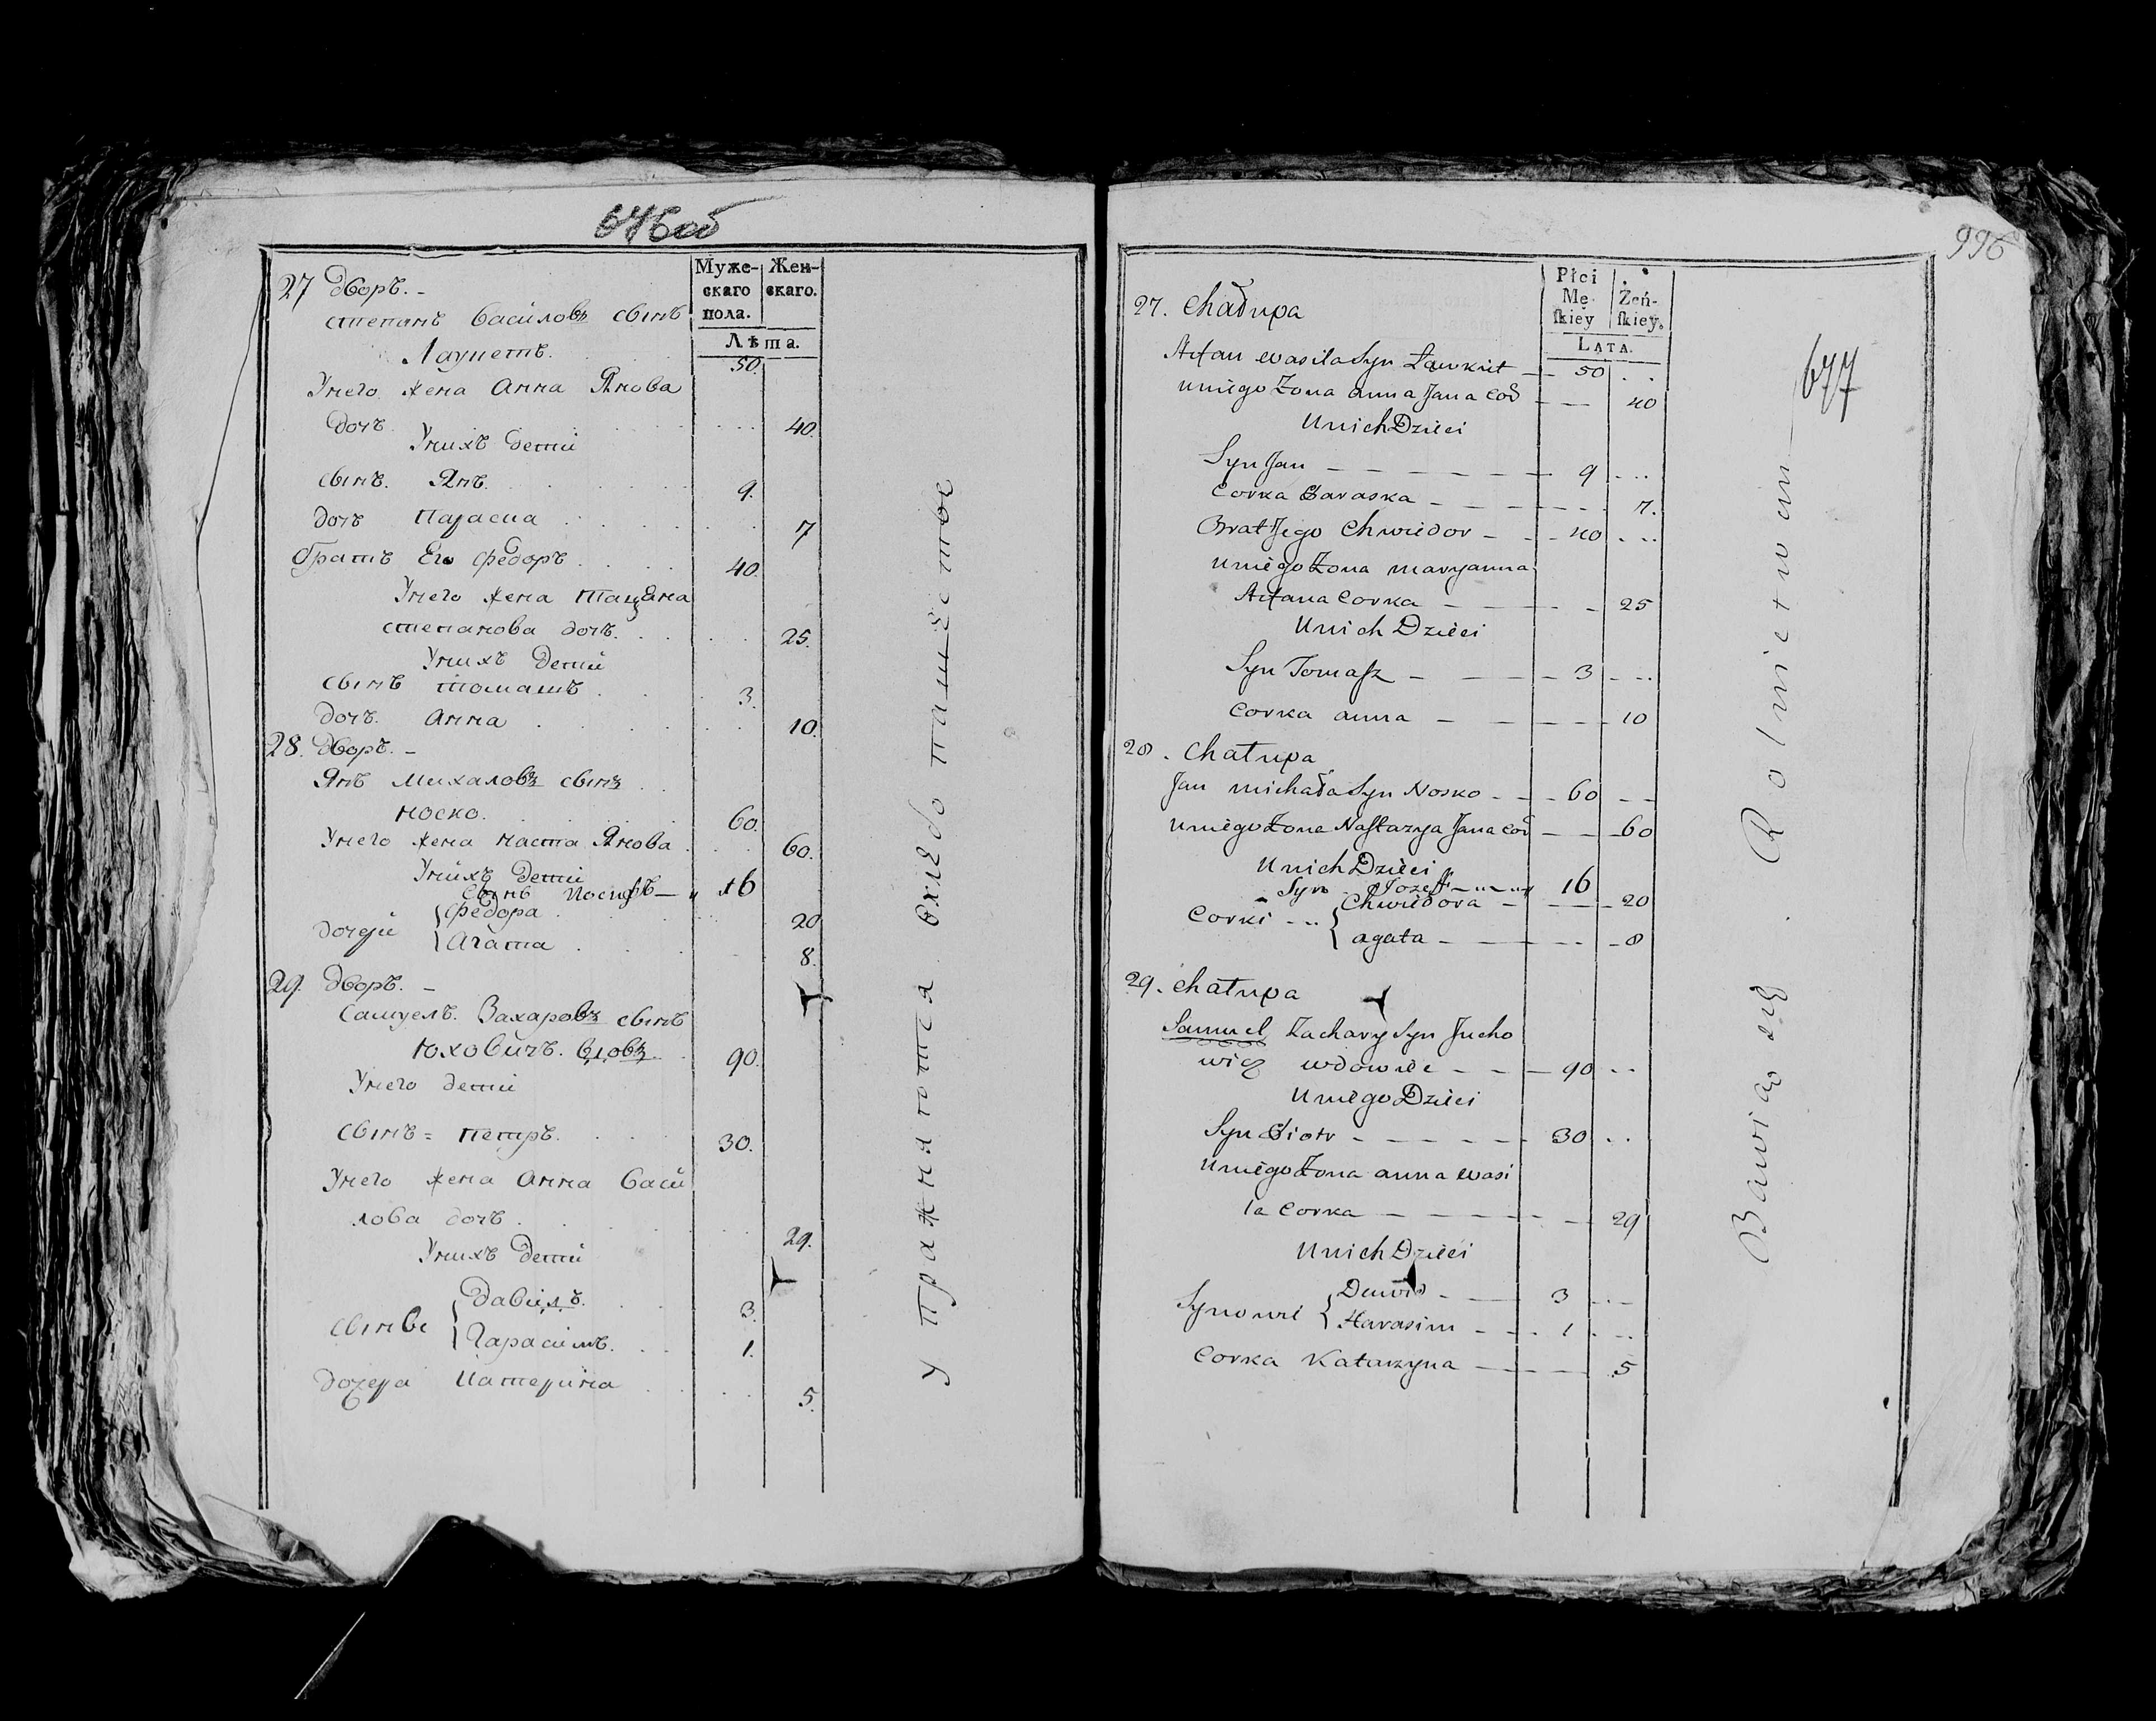 676об
Муже-
скаго
пола.
Жен-
скаго.
Лѣта.
27 дворъ. -
степанъ василовъ сынъ
Лаукетъ. 50.
Унего жена Анна Янова
дочъ. 40.
Унихъ дети
сынъ. Янъ. 9.
дочъ Параска 7
братъ Его федоръ. 40.
Унего жена
степанова дочъ. 25.
Унихъ дети
сынъ томашъ. 3.
дочъ. Анна 10.
28. дворъ. -
Янъ михаловъ сынъ
носко. 60.
Унего жена наста Янова 60.
Унихъ дети
сынъ иосифъ — „ 16
дочери { федора 20
Агата 8.
29. дворъ. -
самуелъ. Захаровъ сынъ
юховичъ. вдовъ. 90.
Унего дети
сынъ = петръ. 30.
Унего жена Анна васи
лова дочъ. 29.
Унихъ дети
сынве { давидъ. 3.
гарасимъ. 1.
дочера катерина 5.
упражняются вхлебопашестве
996
677
Płci
Mę-
ſkiey
Żeń-
ſkiey.
LATA.
27. Chałupa
Astan wasila Syn Lawkiet — 50 . .
uniego Zona anna Jana Cod — — 40
Unich Dzieci
Syn Jan — — — — — — 9 . . .
Corka Paraska — — — — — 7.
Brat Jego Chwiedor — — 40 . . .
uniego Zona maryanna
Astana Corka — — — — 25
Unich Dzieci
Syn Tomaſz — — — — 3 - ..
Corka anna — — — — — 10
28. Chałupa
Jan michała Syn Nosko - - - 60 - -
uniego Zone Naſtazya Jana Cod — — 60
Unich Dzieci
Syn Jozeff 16
Corki - .. { Chwiedora — — — 20
agata — — — — 8
29. Chałupa
Samuel Zachary Syn Jucho
wicz wdowiec — — — 90 - -
Uniego Dzieci
Syn Piotr — — — — — — 30 . .
Uniego Zona anna wasi
la Corka — — — — — 29
Unich Dzieci
Synowie { Dawid — — 3 . . —
Harasim — — . 1 . . ..
Corka Katarzyna — — — 5
Bawią się Rolnictwem